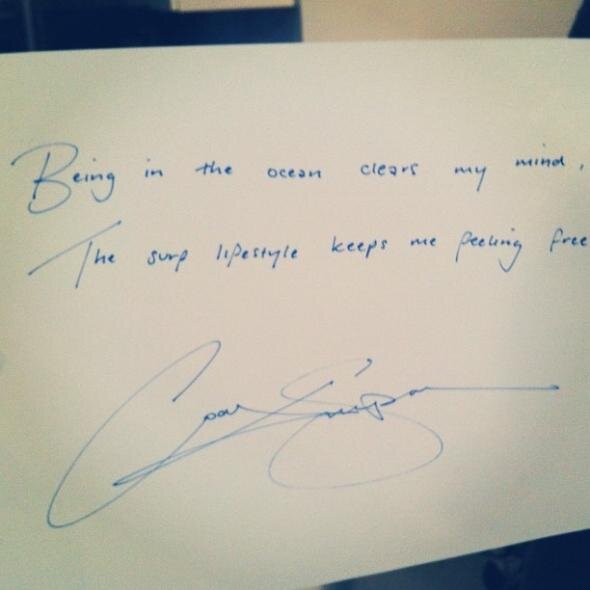 Being in the ocean clears my mind,
The surf lifestyle keeps me feeling free